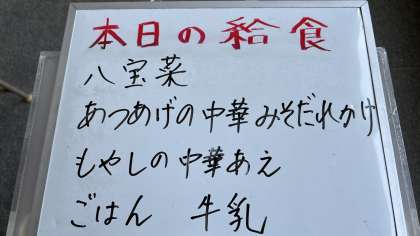 本日の給食
八宝菜
あつあげの中華みそだれかけ
もやしの中華あえ
ごはん　牛乳